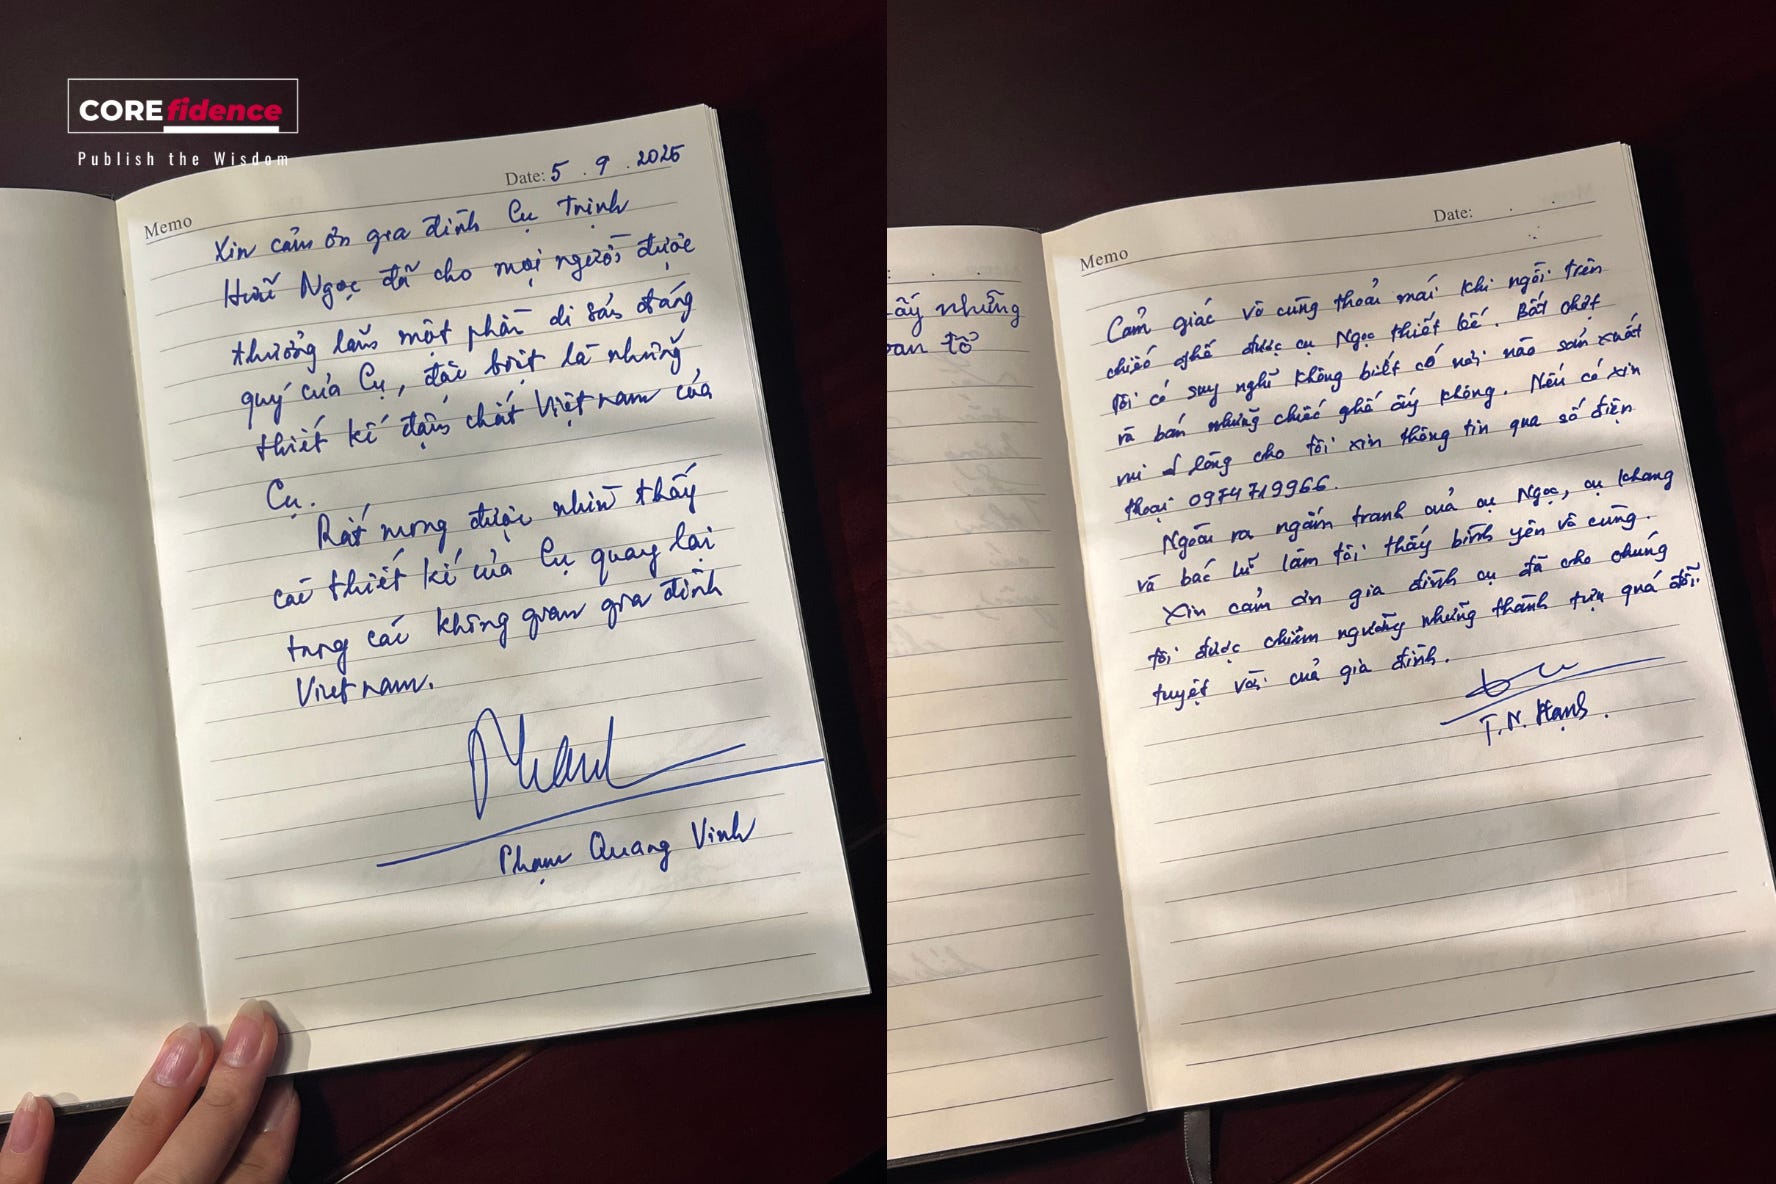 COREfidence
Publish the Wisdom
Memo
Date: 5 . 9 . 2025
Xin cảm ơn gia đình Cụ Trịnh
Hữu Ngọc đã cho mọi người được
thưởng lãm một phần di sản đáng
quý của Cụ, đặc biệt là những
thiết kế đậm chất Việt nam của
Cụ.
Rất mong được nhìn thấy
các thiết kế của Cụ quay lại
trong các không gian gia đình
Việt nam.
Phạm Quang Vinh
ấy những
Memo
Date: . .
Cảm giác vô cùng thoải mái khi ngồi trên
chiếc ghế được cụ Ngọc thiết kế. Bất chợt
tôi có suy nghĩ không biết có nơi nào sản xuất
và bán những chiếc ghế ấy không. Nếu có xin
vui lòng cho tôi xin thông tin qua số điện
thoại 0974719966.
Ngoài ra ngắm tranh của cụ Ngọc, cụ Khang
và bác Lữ làm tôi thấy bình yên vô cùng.
Xin cảm ơn gia đình cụ đã cho chúng
tôi được chiêm ngưỡng những thành tựu quá đỗi
tuyệt vời của gia đình.
T.N. Hạnh.